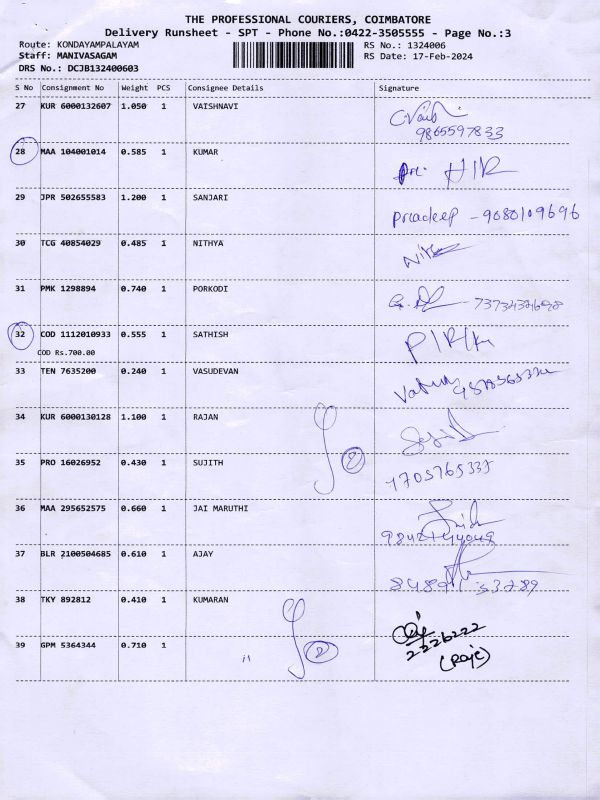 THE PROFESSIONAL COURIERS, COIMBATORE
Delivery Runsheet - SPT - Phone No.:0422-3505555 - Page No.:3
Route: KONDAYAMPALAYAM RS No.: 1324006
Staff: MANIVASAGAM RS Date: 17-Feb-2024
DRS No.: DCJB132400603
S No Consignment No Weight PCS Consignee Details Signature
27 KUR 6000132607 1.050 1 VAISHNAVI
9865597833
28 MAA 104001014 0.585 1 KUMAR
29 JPR 502655583 1.200 1 SANJARI
Pradeep - 9080109696
30 TCG 40854029 0.485 1 NITHYA
31 PMK 1298894 0.740 1 PORKODI
32 COD 1112010933 0.555 1 SATHISH
COD Rs.700.00
33 TEN 7635200 0.240 1 VASUDEVAN
34 KUR 6000130128 1.100 1 RAJAN
2
35 PRO 16026952 0.430 1 SUJITH
36 MAA 295652575 0.660 1 JAI MARUTHI
37 BLR 2100504685 0.610 1 AJAY
38 TKY 892812 0.410 1 KUMARAN
2226222
39 GPM 5364344 0.710 1
2
(Raje)